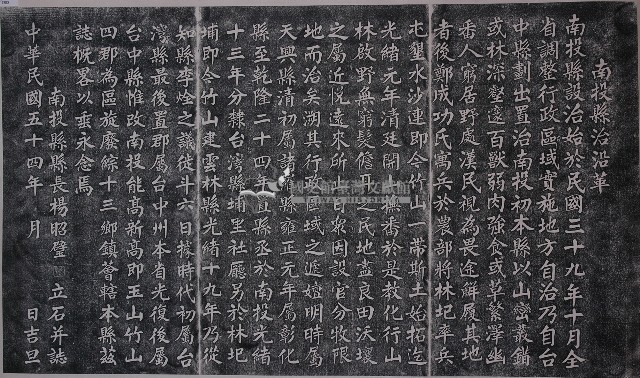 南投縣治沿革
南投縣設治始於民國三十九年十月全
省調整行政區域實施地方自治乃自台
中縣劃出置治南投初本縣以山巒叢錯
或林深壑邃百獸弱肉強食或草繁澤幽
番人窮居野處漢民視為畏途鮮履其地
者後鄭成功氏寓兵於農部將林圯率兵
屯墾水沙連即今竹山一帶斯土始拓迄
光緒元年清廷開山撫番於是教化行山
林啟野無窮髮儋耳之民地盡良田沃壤
之屬近悅遠來所止日眾因設官分牧限
地而治矣溯其行政區域之遞嬗明時屬
天興縣清初屬諸羅縣雍正元年屬彰化
縣至乾隆二十四年置縣丞於南投光緒
十三年分隸台灣縣埔里社廳另於林圯
埔即今竹山建雲林縣光緒十九年乃從
知縣李烇之議徙斗六日據時代初屬台
灣縣最後置郡屬台中州本省光復後屬
台中縣惟改南投能高新高即玉山竹山
四郡為區旋廢綜十三鄉鎮薈轄本縣茲
誌概畧以垂永念焉
南投縣縣長楊昭璧 立石并誌
中華民國五十四年 月 日吉旦